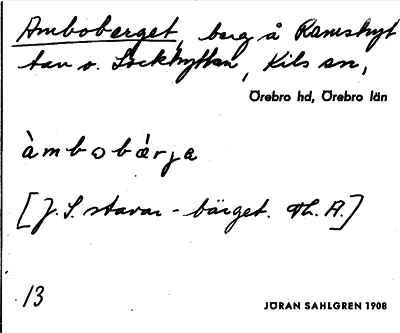 Amboberget, berg å Ramshyt
tan o. Lockhyttan, Kils sn,
Örebro hd, Örebro län
àmbobárja
[J. S. stavar - bärget. Th. A.]
13
JÖRAN SAHLGREN 1908